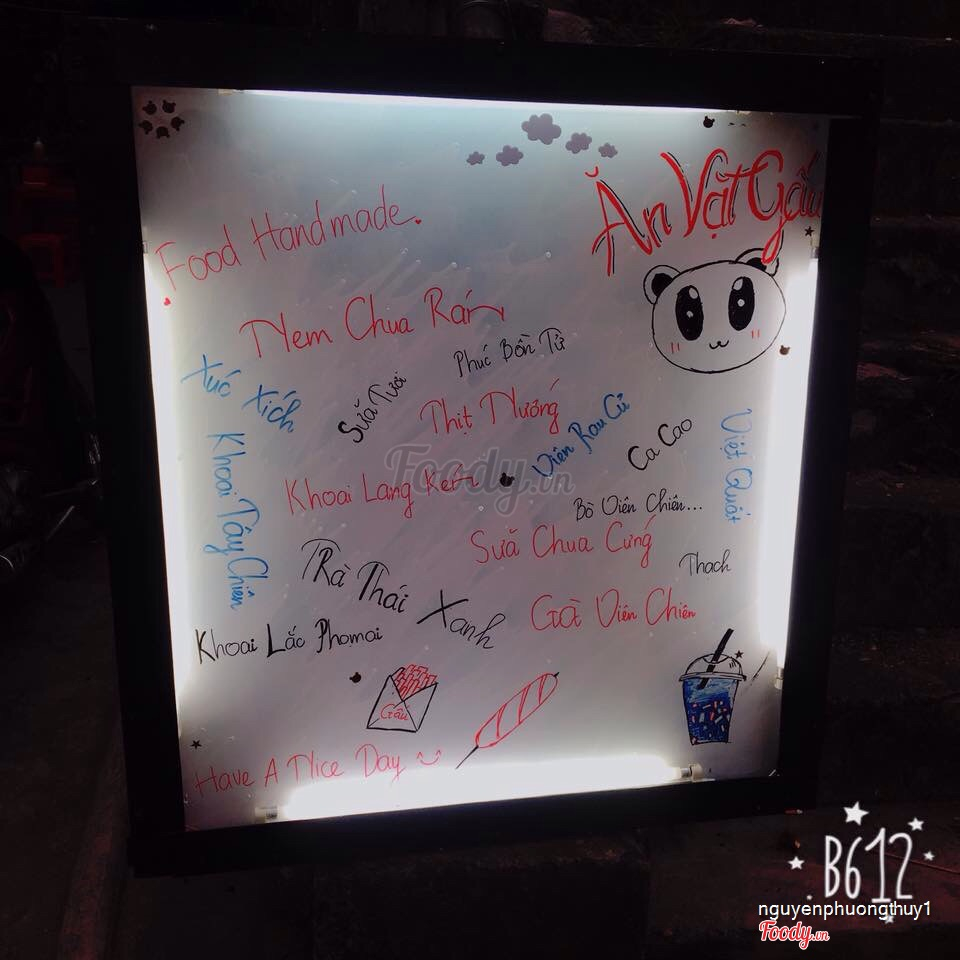 Ăn Vặt Gấu
Food Handmade
Nem Chua Rán
Phúc Bồn Tử
Xúc Xích
Sữa Tươi
Thịt Nướng
Viên Rau Củ
Ca Cao
Việt Quất
Khoai Tây Chiên
Khoai Lang Kén
Foody.vn
Bò Viên Chiên...
Sữa Chua Cưng
Trà Thái
Xanh
Thạch
Gà Viên Chiên
Khoai Lắc Phomai
Gấu
Have A Nice Day
B612
nguyenphuongthuy1
Foody.vn